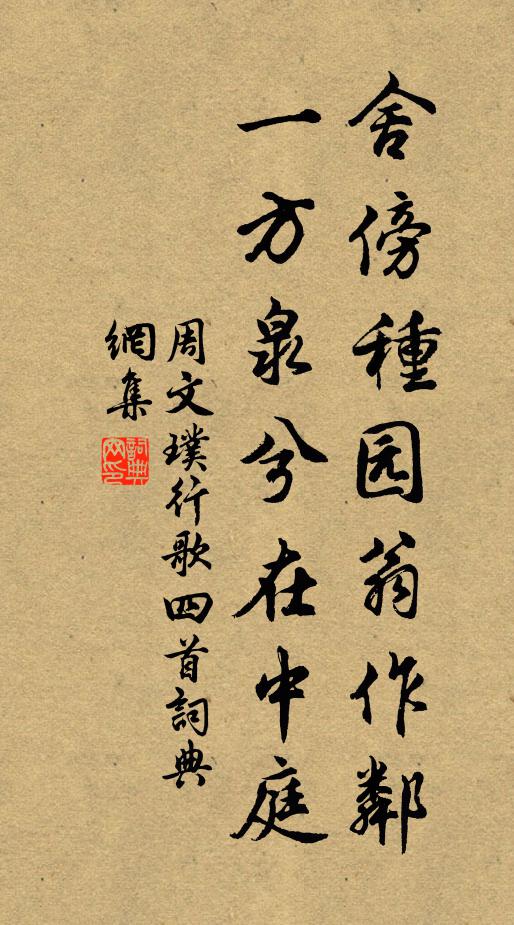 舍傍種园翁作鄰
一方泉兮在中庭
周文璞行歌四首詞典
網集
詞典网印